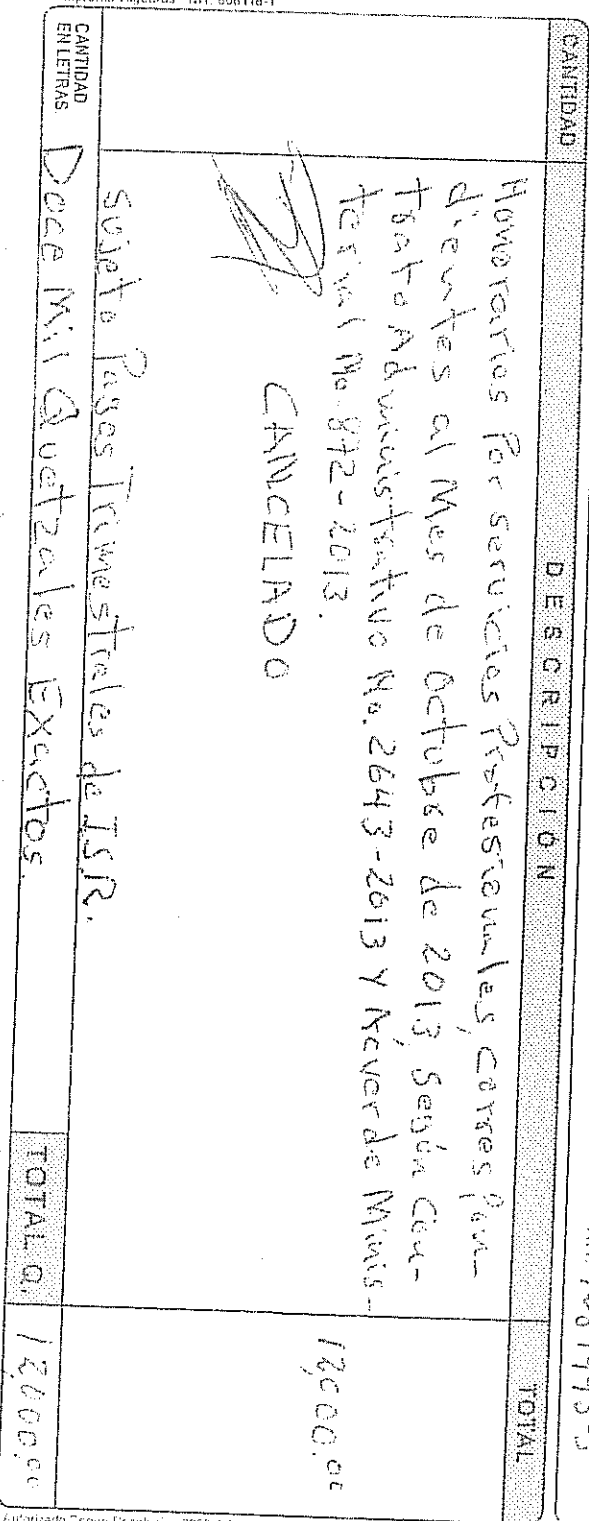 CANTIDAD DESCRIPCION TOTAL
Honorarios Por servicios Profesionales, Corres Pon-
dientes al Mes de Octubre de 2013, Según Con-
trato Administrativo No. 2643-2013 Y Acuerdo Minis-
terial No. 872-2013. 12,000.00
CANCELADO
Sujeto Pagos Trimestrales de I.S.R.
CANTIDAD EN LETRAS Doce Mil Quetzales Exactos. TOTAL Q. 12,000.00